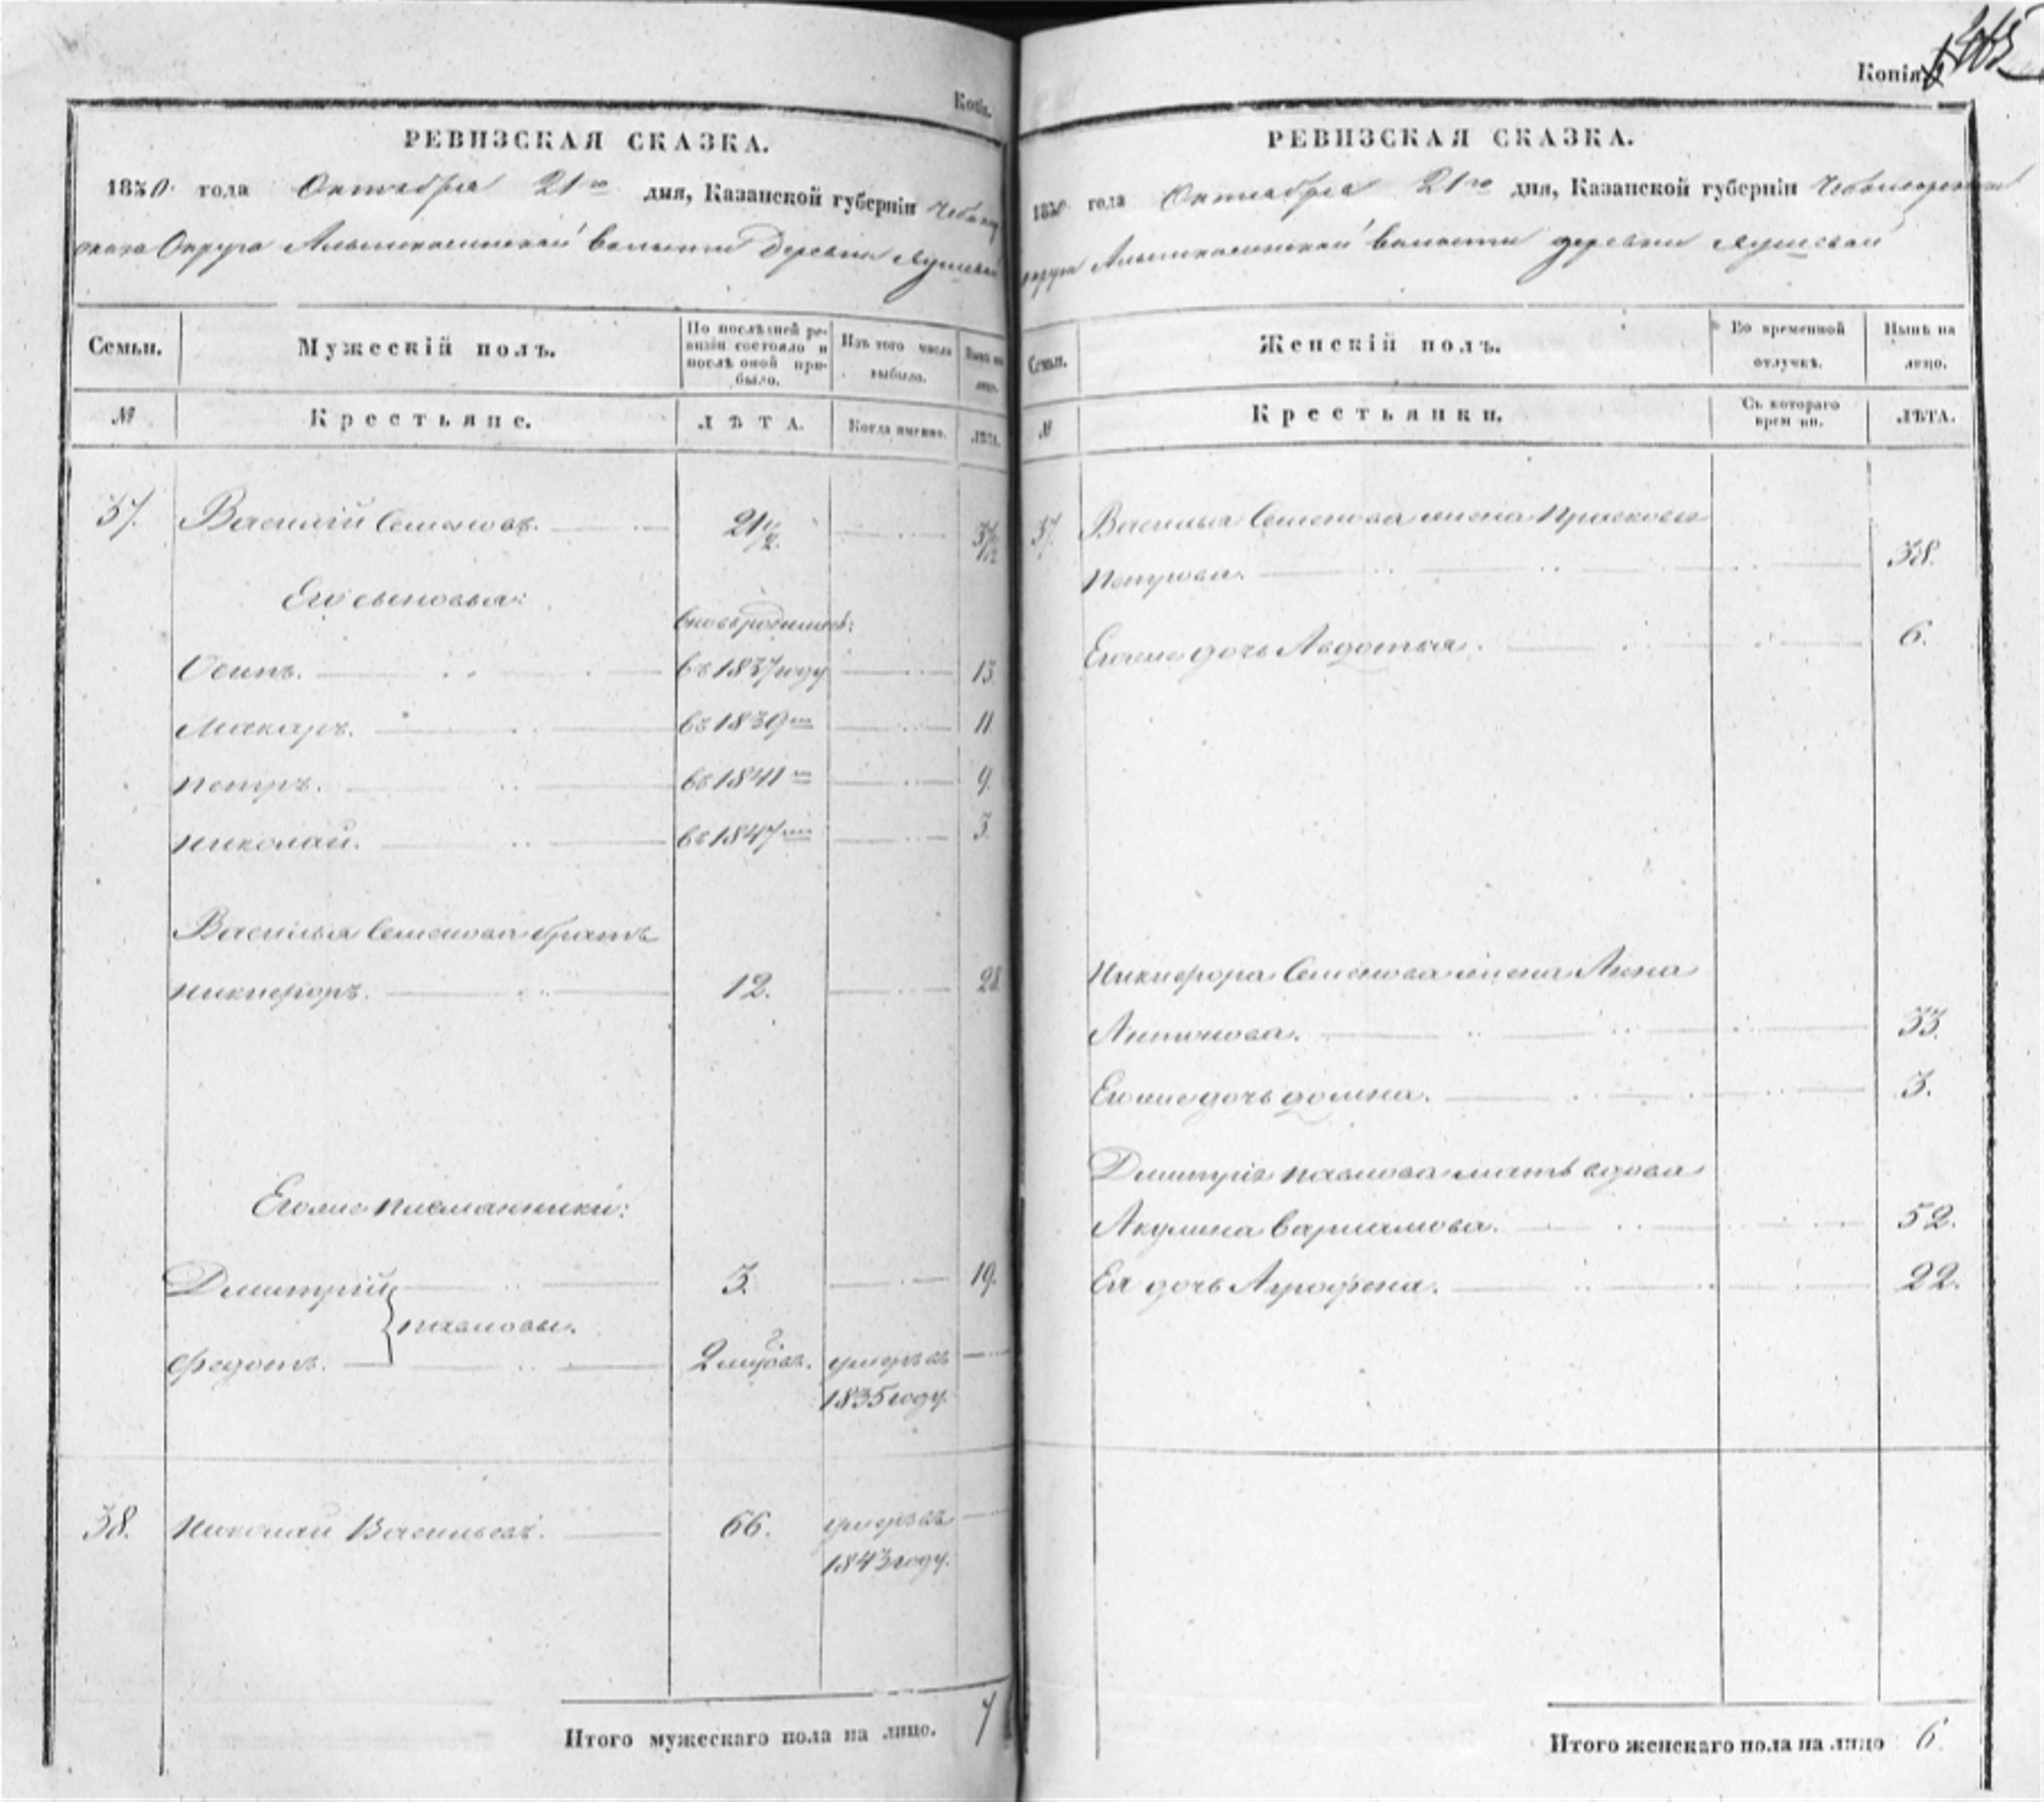 Копія.
РЕВИЗСКАЯ СКАЗКА.
1850 года Октября 21го дня, Казанской губерніи Чебокс
скаго Округа Алымкасинской волости Деревни Яушевой
Семьи.
Мужескій полъ.
По послѣдней ре-
визіи состояло и
послѣ оной при-
было.
Изъ того числа
выбыло.
Нынѣ на
лицо.
№
Крестьяне.
ЛѢТА.
Когда именно.
ЛѢТА.
37. Василій Семеновъ. 21 1/2
Его сыновья:
вновь родились:
Осипъ. въ 1837 году 13.
Макаръ. въ 1839 11
Петръ. въ 1841 9.
Николай. въ 1847 3
Василья Семенова братъ
Никифоръ. 12. 28
Его же племянники:
Дмитрій 3. 19.
Павловы.
Федотъ. умеръ въ
1835 году.
38. Николай Васильевъ. 66. умеръ въ
1843 году.
Итого мужескаго пола на лицо. 7
Копія
РЕВИЗСКАЯ СКАЗКА.
1850 года Октября 21го дня, Казанской губерніи
округа Алымкасинской волости деревни Яушевой
Семьи.
Женскій полъ.
Во временной
отлучкѣ.
Нынѣ на
лицо.
№
Крестьянки.
Съ котораго
времени.
ЛѢТА.
37. Василья Семенова жена Прасковья
Петрова. 38.
Его же дочь Авдотья. 6.
Никифора Семенова жена Анна
Антонова. 33.
Его же дочь Домна. 3.
Дмитрія Павлова мать вдова
Акулина Варламова. 52.
Ея дочь Агрофена. 22.
Итого женскаго пола на лицо 6.